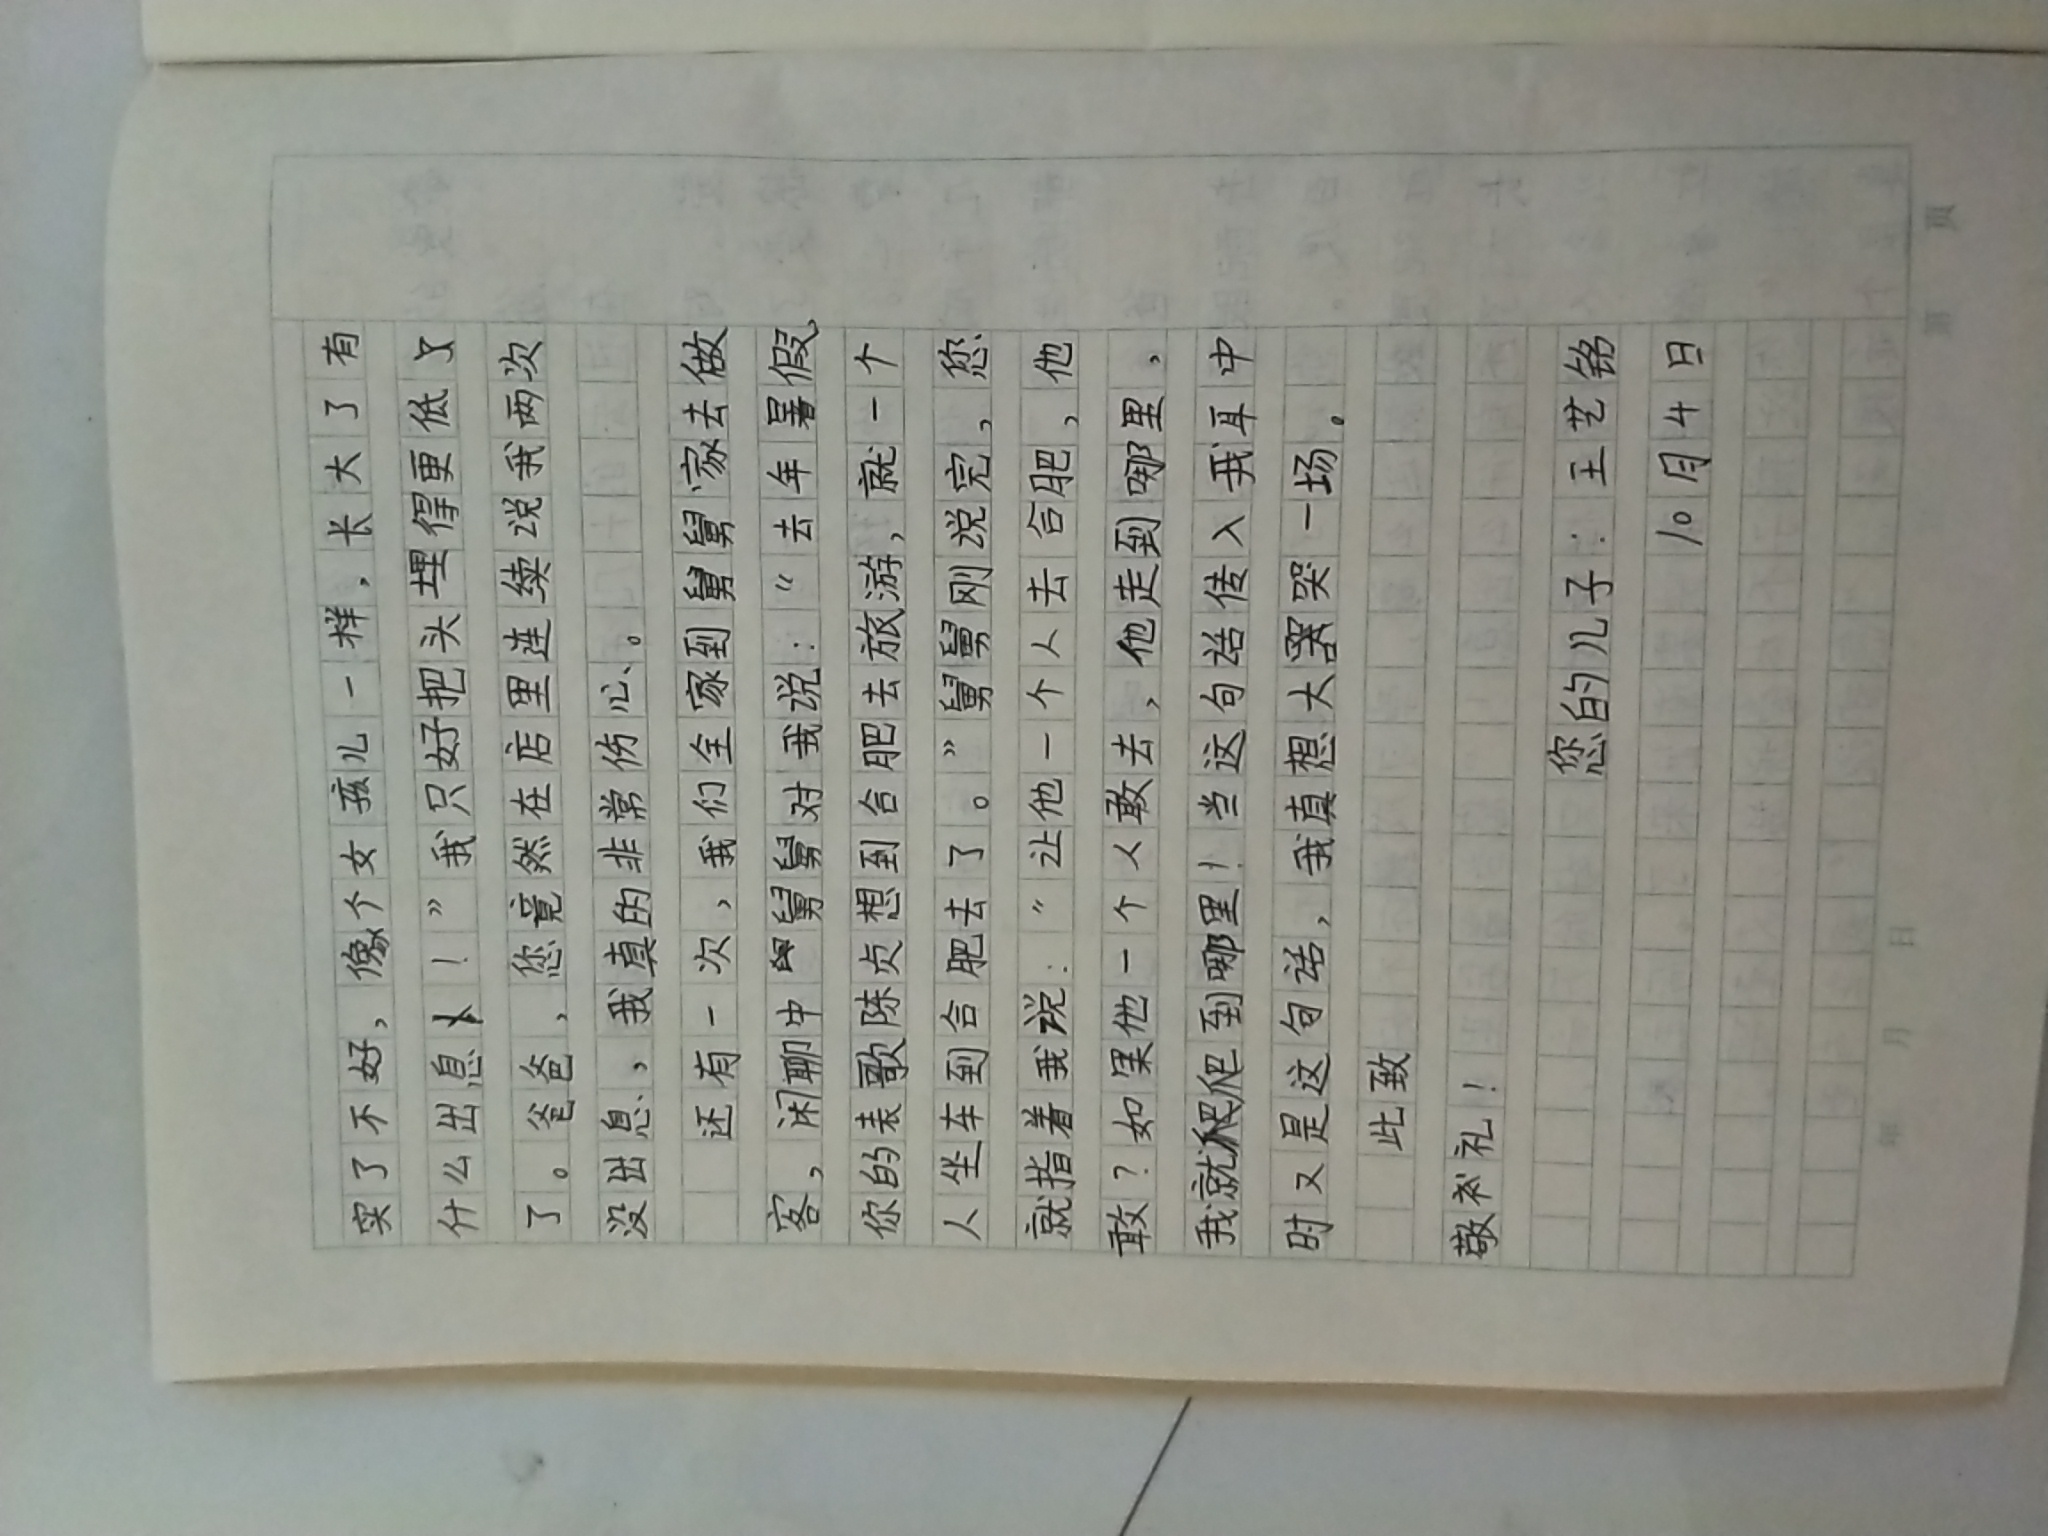 实了不好，像个女孩儿一样，长大了有
什么出息！”我只好把头埋得更低
了。爸爸，您竟然在店里连续说我两次
没出息，我真的非常伤心。
还有一次，我们全家到舅舅家去做
客，闲聊中舅舅对我说：“去年暑假，
你的表歌陈贞想到合肥去旅游，就一个
人坐车到合肥去了。”舅舅刚说完，您
就指着我说：“让他一个人去合肥，他
敢？如果他一个人敢去，他走到哪里，
我就爬到哪里！当这句话传入我耳中
时又是这句话，我真想大哭一场。
此致
敬礼！
您的儿子：王艺铭
10月4日
年 月 日
第 页